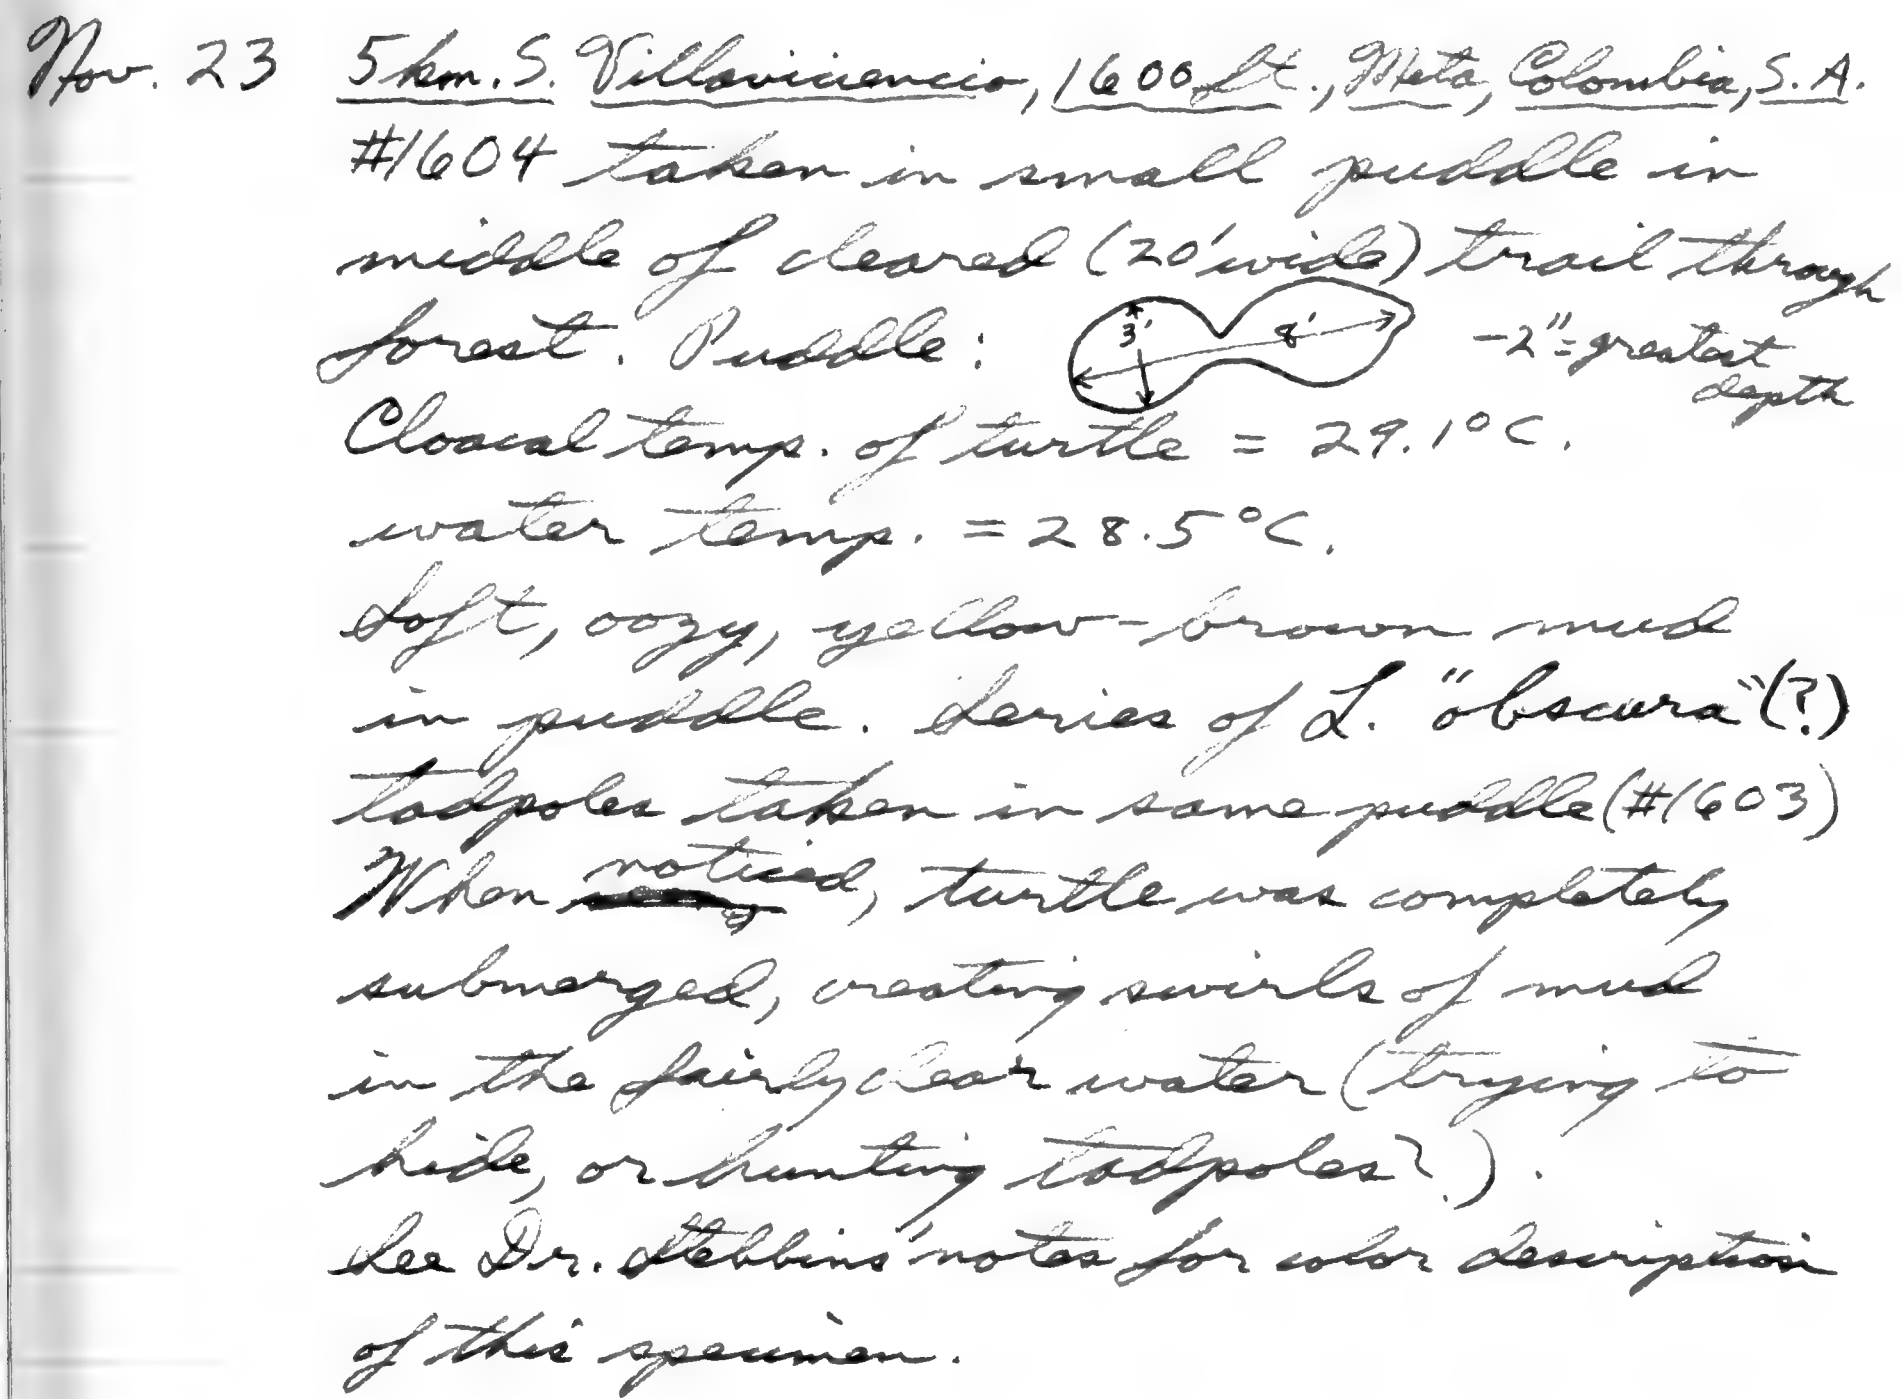 Nov. 23 5 km. S. Villavicencio, 1600 ft., Meta, Colombia, S. A.
#1604 taken in small puddle in
middle of cleared (20' wide) trail through
forest. Puddle: 3' 8' -2" = greatest
depth
Cloacal temp. of turtle = 29.1°C.
water temp. = 28.5°C.
Soft, oozy, yellow-brown mud
in puddle. Series of L. "obscura" (?)
tadpoles taken in same puddle (#1603)
When noticed, turtle was completely
submerged, creating swirls of mud
in the fairly clear water (trying to
hide, or hunting tadpoles?).
See Dr. Stebbins' notes for color description
of this specimen.